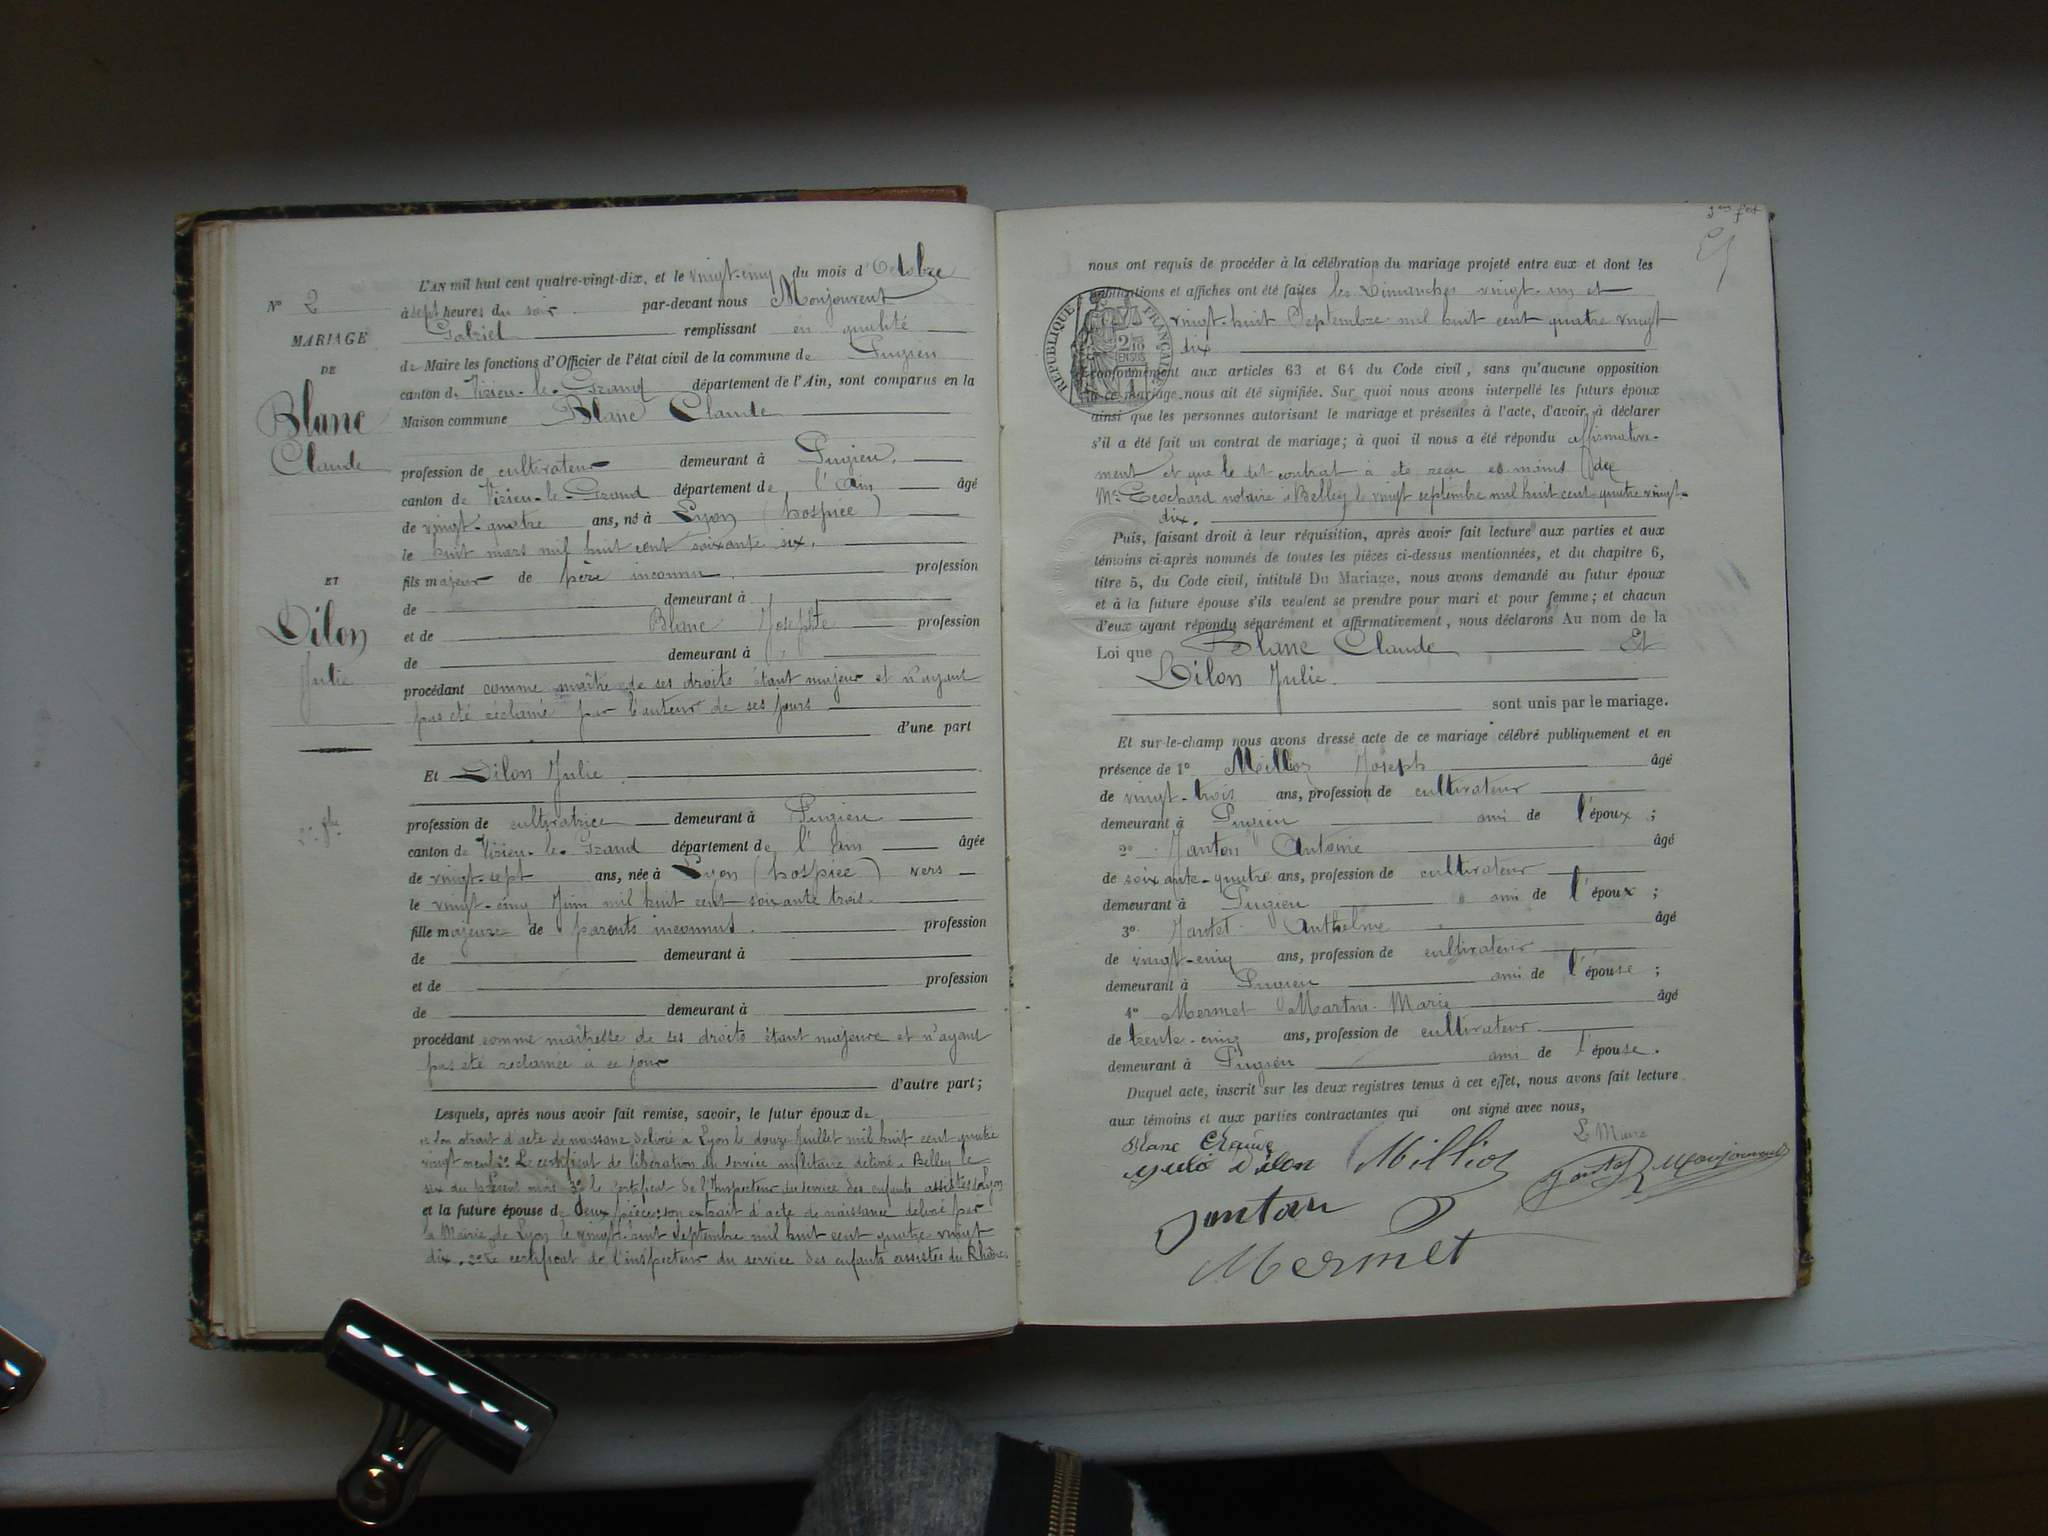 L'AN mil huit cent quatre-vingt-dix, et le vingt-cinq du mois d'Octobre
à sept heures du soir par-devant nous Monjouvent
Gabriel remplissant en qualité
de Maire les fonctions d'Officier de l'état civil de la commune de Pugieu
canton de Virieu-le-Grand département de l'Ain, sont comparus en la
Maison commune Blanc Claude
N° 2
MARIAGE
DE
Blanc
Claude
ET
Dilon
Julie
profession de cultivateur demeurant à Pugieu.
canton de Virieu-le-Grand département de l'Ain âgé
de vingt-quatre ans, né à Lyon (hospice)
le huit mars mil huit cent soixante six.
fils majeur de père inconnu. profession
de demeurant à
et de Blanc Josephte profession
de demeurant à
procédant comme maître de ses droits étant majeur et n'ayant
pas été réclamé par l'auteur de ses jours
d'une part
Et Dilon Julie
profession de cultivatrice demeurant à Pugieu
canton de Virieu-le-Grand département de l'Ain âgée
de vingt-sept ans, née à Lyon (hospice) vers
le vingt-cinq Juin mil huit cent soixante trois.
fille majeure de parents inconnus. profession
de demeurant à
et de profession
de demeurant à
procédant comme maîtresse de ses droits étant majeure et n'ayant
pas été réclamée à ce jour
d'autre part;
Lesquels, après nous avoir fait remise, savoir, le futur époux de
son extrait d'acte de naissance délivré à Lyon le douze Juillet mil huit cent quatre
vingt neuf 2° Le certificat de libération du service militaire délivré à Belley le
six du présent mois 3° le certificat de l'Inspecteur du service des enfants assistés à Lyon
et la future épouse de deux pièces: son extrait d'acte de naissance délivré par
la Mairie de Lyon le vingt-huit septembre mil huit cent quatre vingt
dix. 2° Le certificat de l'inspecteur du service des enfants assistés du Rhône
nous ont requis de procéder à la célébration du mariage projeté entre eux et dont les
publications et affiches ont été faites les Dimanches vingt-un et
vingt-huit Septembre mil huit cent quatre vingt
dix
RÉPUBLIQUE FRANÇAISE
2/10
EN SUS
conformément aux articles 63 et 64 du Code civil, sans qu'aucune opposition
à ce mariage nous ait été signifiée. Sur quoi nous avons interpellé les futurs époux
ainsi que les personnes autorisant le mariage et présentes à l'acte, d'avoir à déclarer
s'il a été fait un contrat de mariage; à quoi il nous a été répondu affirmative-
ment et que le dit contrat a été reçu es mains de
Me notaire à Belley le vingt septembre mil huit cent quatre vingt-
dix.
Puis, faisant droit à leur réquisition, après avoir fait lecture aux parties et aux
témoins ci-après nommés de toutes les pièces ci-dessus mentionnées, et du chapitre 6,
titre 5, du Code civil, intitulé Du Mariage, nous avons demandé au futur époux
et à la future épouse s'ils veulent se prendre pour mari et pour femme; et chacun
d'eux ayant répondu séparément et affirmativement, nous déclarons Au nom de la
Loi que Blanc Claude Et
Dilon Julie.
sont unis par le mariage.
Et sur-le-champ nous avons dressé acte de ce mariage célébré publiquement et en
présence de 1° Millioz Joseph âgé
de vingt-trois ans, profession de cultivateur
demeurant à Pugieu ami de l'époux;
2° Janton Antoine âgé
de soixante-quatre ans, profession de cultivateur
demeurant à Pugieu ami de l'époux;
3° Jantet Anthelme âgé
de vingt-cinq ans, profession de cultivateur
demeurant à Pugieu ami de l'épouse;
4° Mermet Martin-Marie âgé
de trente-cinq ans, profession de cultivateur
demeurant à Pugieu ami de l'épouse.
Duquel acte, inscrit sur les deux registres tenus à cet effet, nous avons fait lecture
aux témoins et aux parties contractantes qui ont signé avec nous,
Le Maire
Blanc Claude
Julie Dilon Millioz Jantet Monjouvent
Janton
Mermet